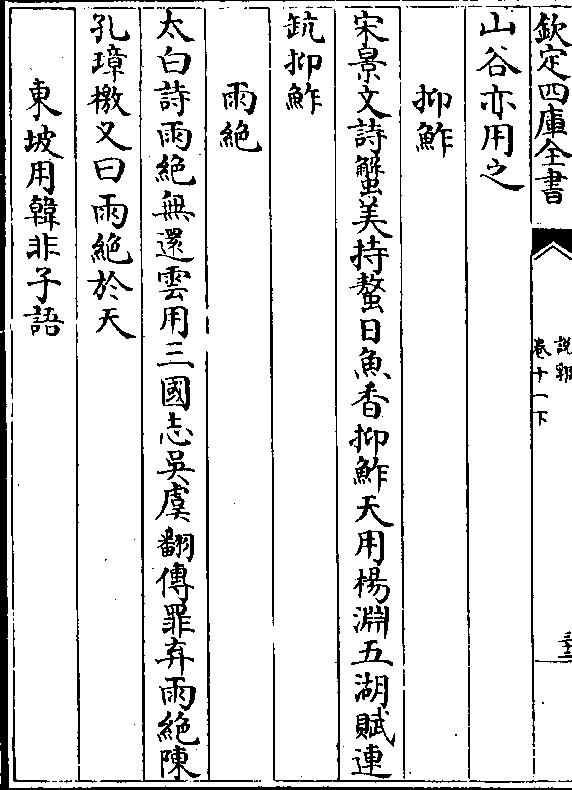 欽定四庫全書
説郛
卷十一下
三十二
山谷亦用之
抑鮓
宋景文詩蟹美持螯日魚香抑鮓天用楊淵五湖賦連
缻抑鮓
雨絶
太白詩雨絶無還雲用三國志吳虞翻傳罪弃雨絶陳
孔璋檄又曰雨絶於天
東坡用韓非子語